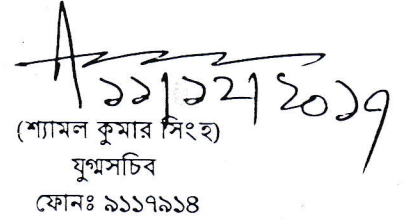 ১১/১২/২০১৭
(শ্যামল কুমার সিংহ)
যুগ্মসচিব
ফোনঃ ৯১১৭৯১৪